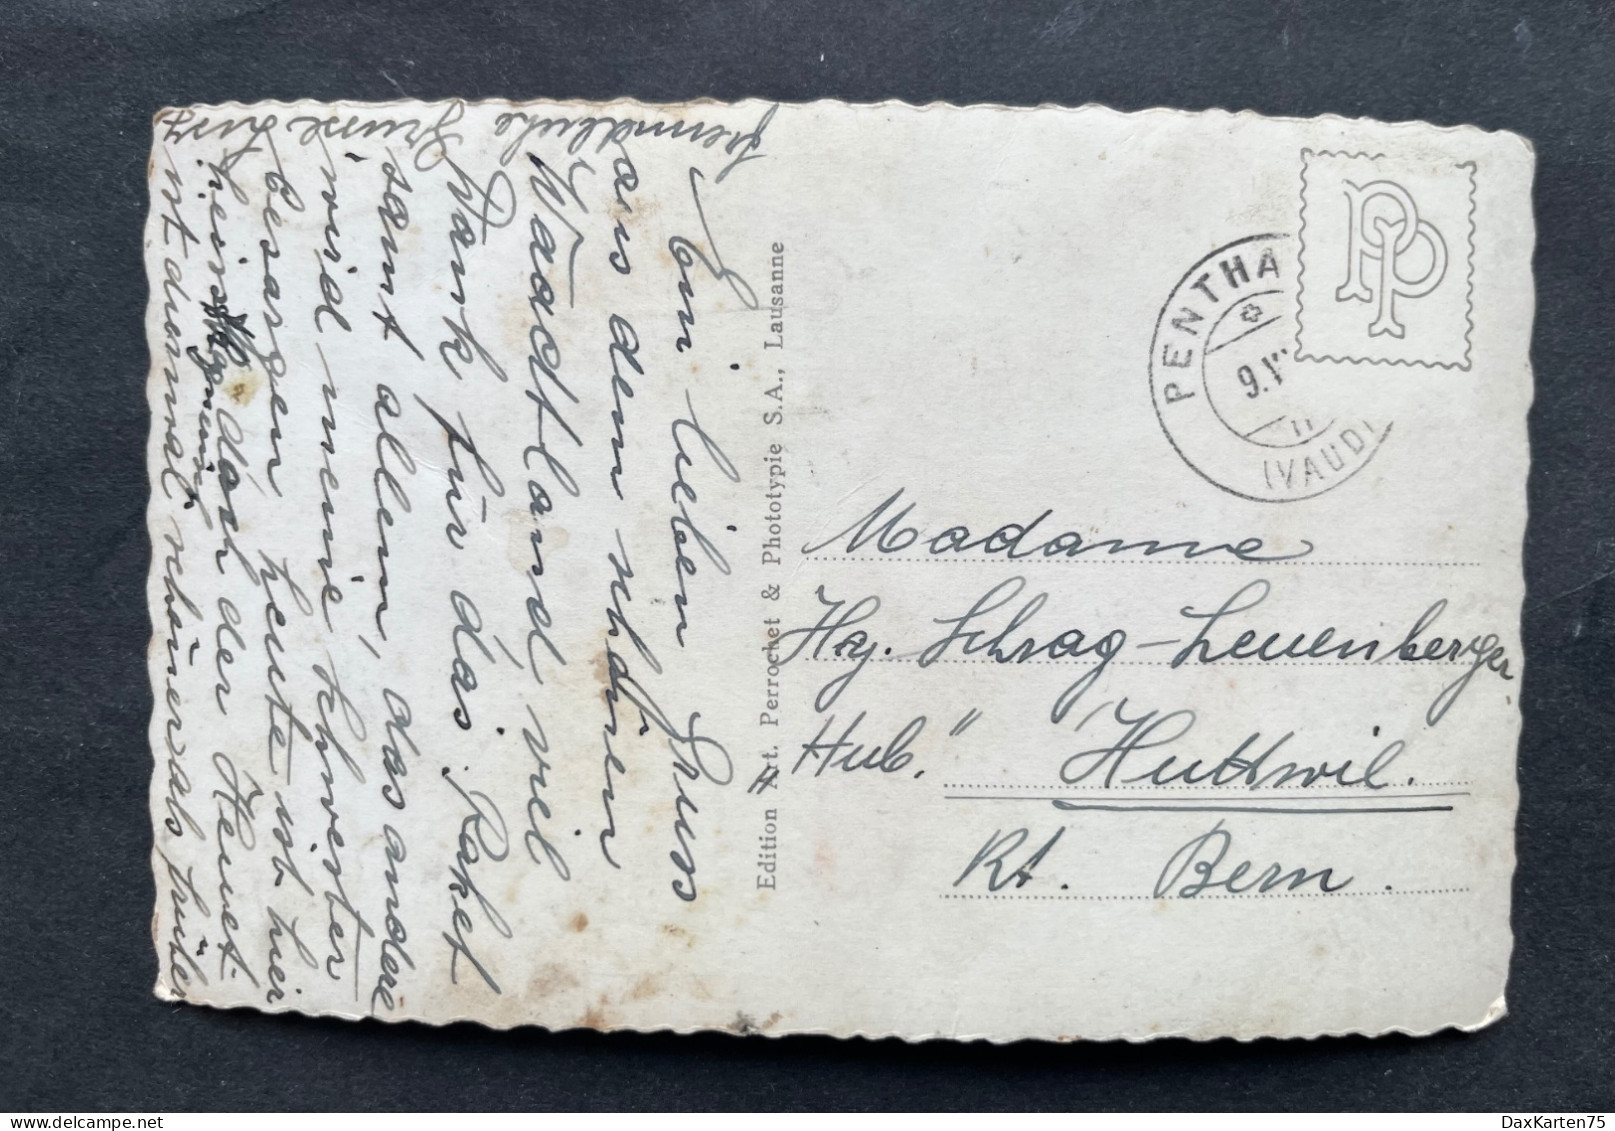 Ein lieben Gruss
aus dem schönen
Waadtland, viel
Dank für das Paket
samt allem, das andere
wird meine Schwester
besorgen heute ist hier
der Heuet
ist dann mal schöner als früher
freundliche
Grüsse
Edition Art. Perrochet & Phototypie S.A., Lausanne
PENTHA
9.V
(VAUD)
PP
Madame
Hg. Schrag-Leuenberger
Hub." Huttwil.
Kt. Bern.
DaxKarten75